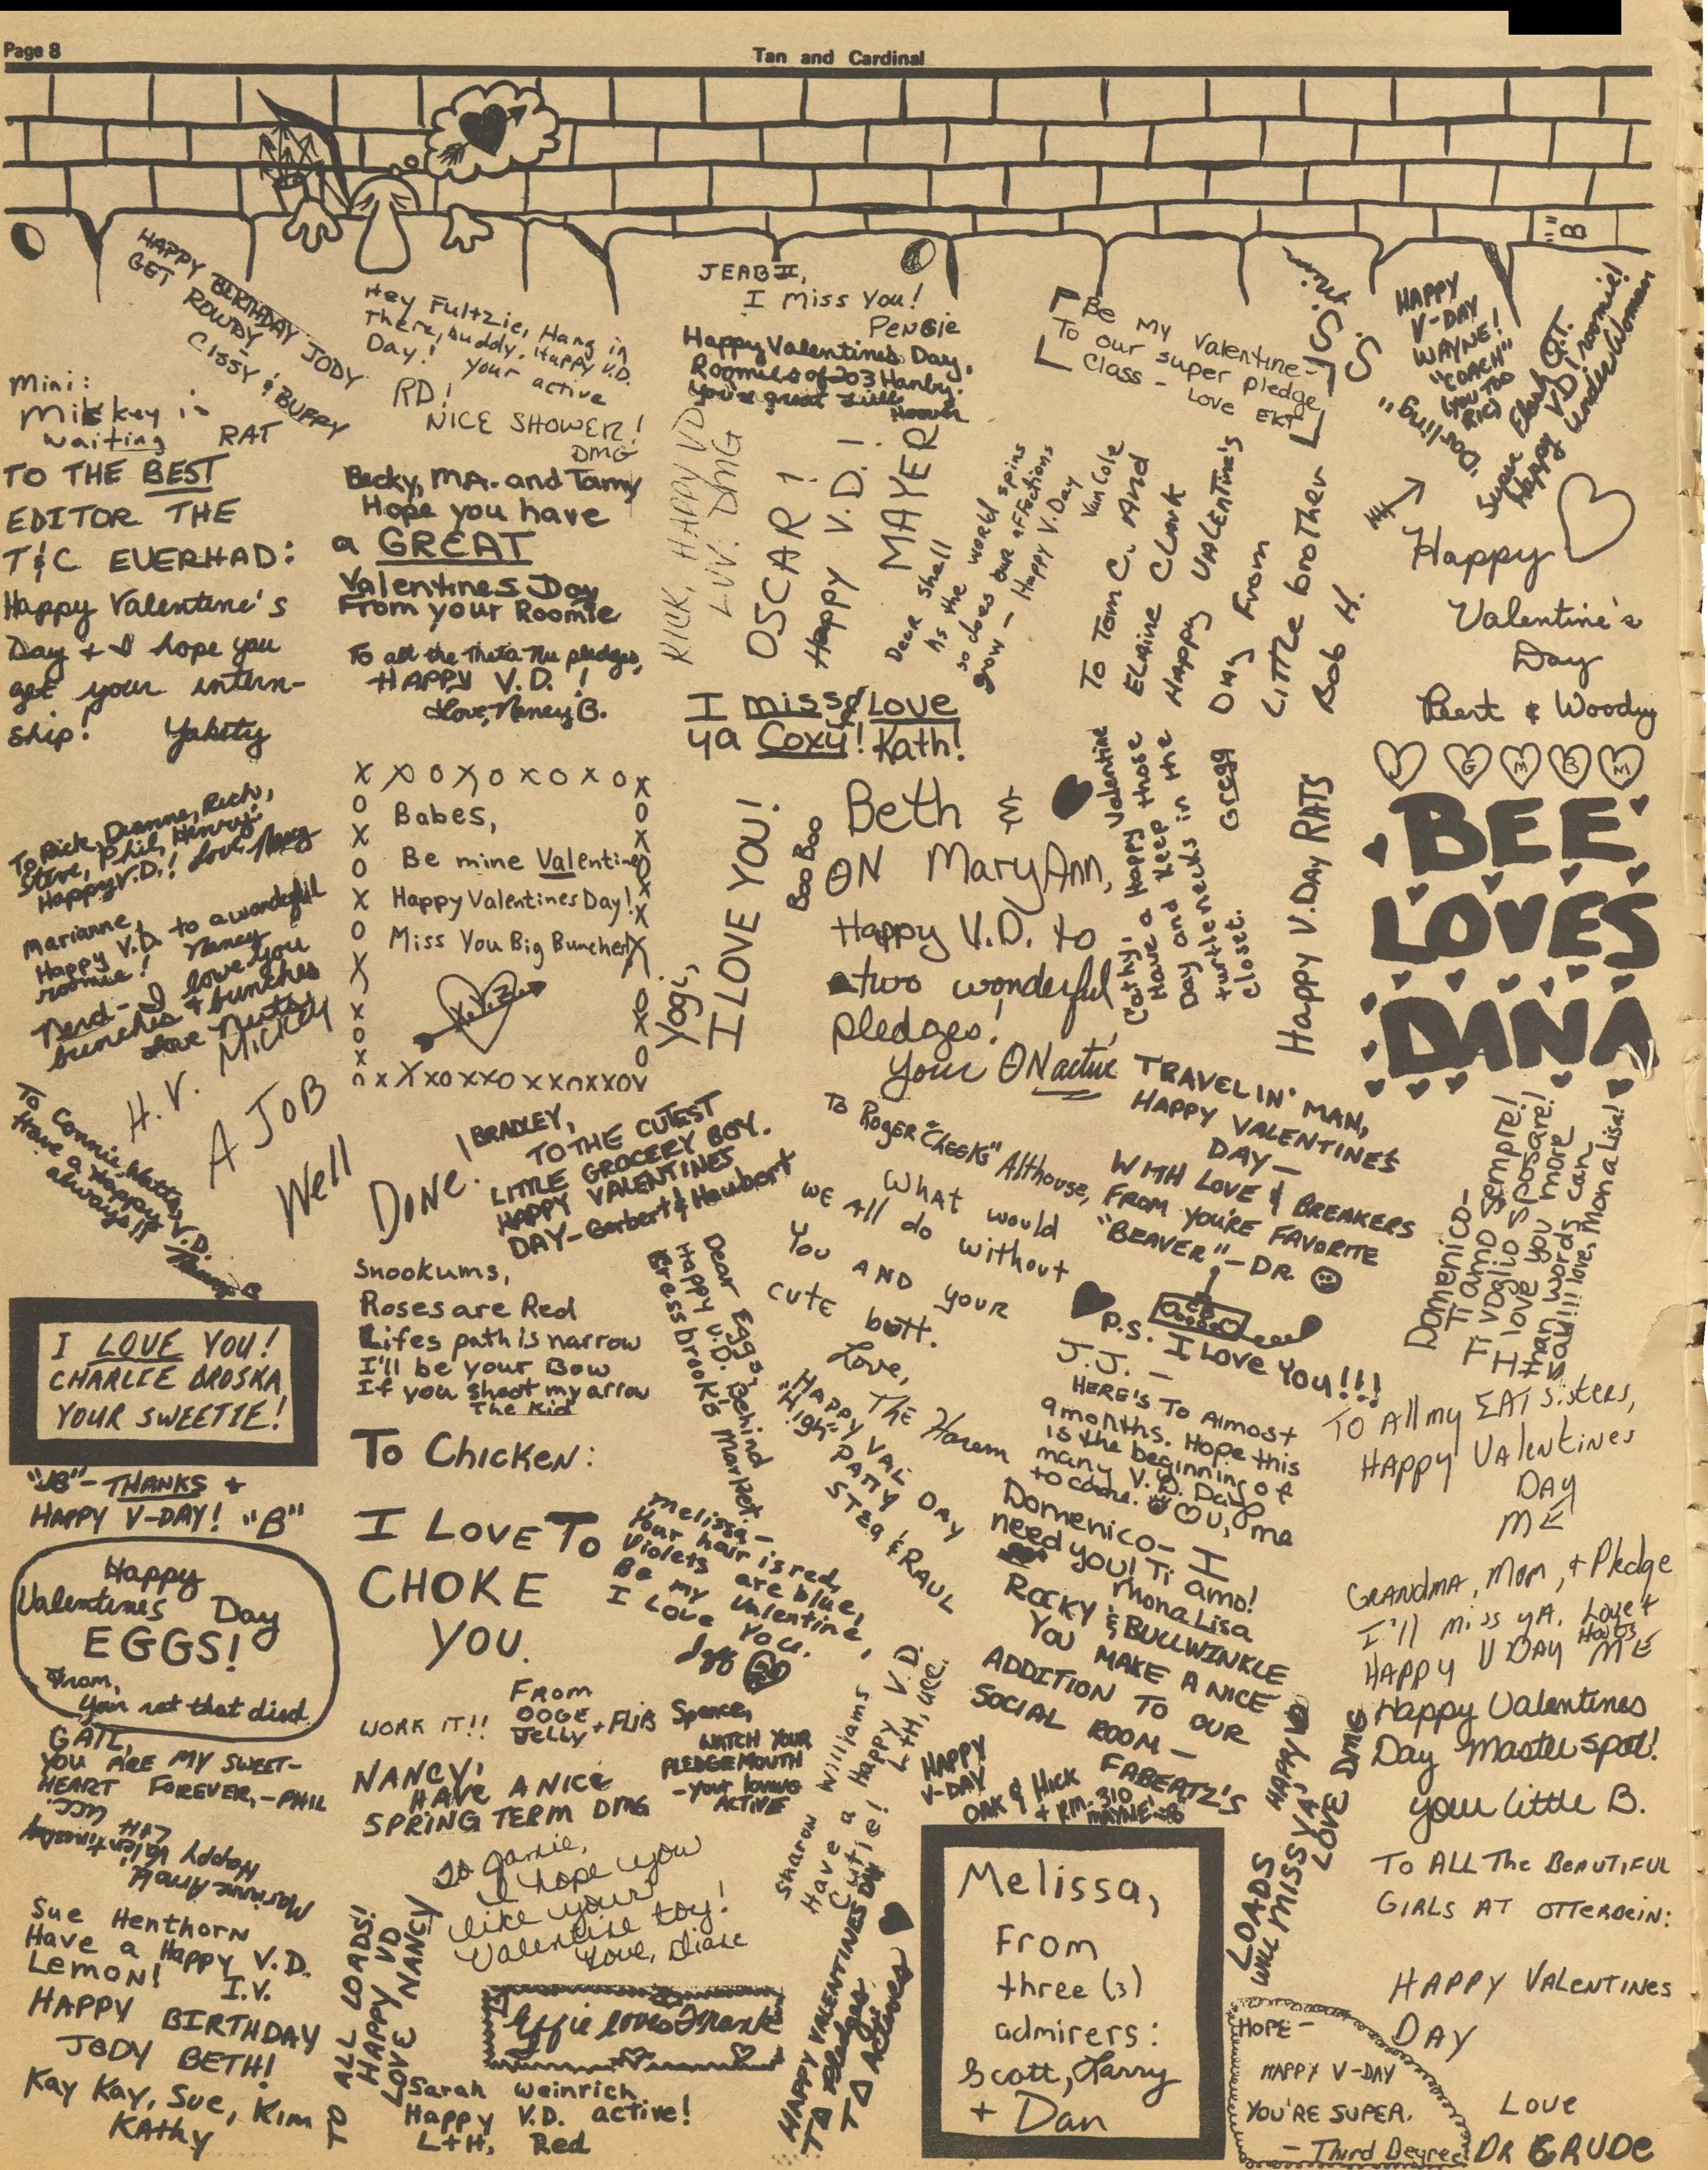 Page 8
Tan and Cardinal
HAPPY BIRTHDAY JODY
GET ROWDY -
CISSY & BUFFY
Hey Fultzie, Hang in
There, buddy. Happy V.D.
Day! your active
JEAB II,
I Miss You!
PENGIE
Happy Valentines Day,
Roomies of 203 Hanby.
You're great
Be My Valentine -
To our super pledge
Class - Love EKT
HAPPY
V-DAY
WAYNE!
"COACH"
(YOU TOO
RIC)
V.D. roomie!
Happy
Mini:
waiting
RAT
RD!
NICE SHOWER!
DMG
TO THE BEST
EDITOR THE
T&C EVERHAD:
Happy Valentine's
Day + I hope you
get your intern-
ship! Yakity
Becky, MA. and Tammy
Hope you have
a GREAT
Valentines Day
From your Roomie
To all the Theta Nu pledges,
HAPPY V.D.!
Love, Nancy B.
RICK, HAPPY VD
LUV. DMG
OSCAR!
Happy V.D.!
MAYER
Dear Shell
As the world spins
so does our affections
grow - Happy V.Day
Van Cole
To Tom C. And
ELAINE CLARK
Happy VALENTINE'S
Day From
Little brother
Bob H.
Happy
Valentine's
Day
Bert & Woody
I miss & LOVE
ya Coxy! Kath!
J G M B M
BEE
LOVES
DANA
To Rick, Dianne, Rich,
Steve, Phil, Henry:
Happy V.D.! Love, Nancy
Marianne,
Happy V.D. to a wonderful
roomie! Nancy
Nerd - I love you
bunches + bunches
Love Nerts
H.V. Mickey
A JOB
Well
DONE.
X X O X O X O X O X
Babes,
Be mine Valentine
Happy Valentines Day!
Miss You Big Bunches!
Yogi,
I LOVE YOU!
Boo Boo
Beth &
ΘN Mary Ann,
Happy V.D. to
two wonderful
pledges!
Your ΘN active
Cathy!
Have a Happy Valentine
Day and keep those
turtlenecks in the
closet.
Gregg
Happy V.DAY RATS
To Connie Watts,
Have a Happy V.D.
always!!
BRADLEY,
TO THE CUTEST
LITTLE GROCERY BOY.
HAPPY VALENTINES
DAY - Garbert & Haubert
To Roger "Cheeks" Althouse,
What would
We all do without
You AND your
cute butt.
Love,
The Harem
TRAVELIN' MAN,
HAPPY VALENTINES
DAY -
WITH LOVE & BREAKERS
FROM YOU'RE FAVORITE
"BEAVER" - DR.
CB
P.S. I Love You!!!
Domenico -
Ti amo Sempre!
Ti voglio sposare!
I love you more
than words can
say!!! love, Mona Lisa!
Snookums,
Roses are Red
Lifes path is narrow
I'll be your Bow
If you shoot my arrow
The Kid
Dear Eggs,
Happy V.D. Behind
Eressbrook's Market.
I LOVE YOU!
CHARLIE BROSKA,
YOUR SWEETIE!
"JB" - THANKS +
HAPPY V-DAY! "B"
To Chicken:
I LOVE TO
CHOKE
YOU.
From
OOGE
Jelly + FLIB
HAPPY VAL DAY
"High"
PATTY
STEG & RAUL
J.J. -
HERE'S To Almost
9 months. Hope this
is the beginning of
many V.D. Days
to come.
me
TO All my EAT sisters,
HAPPY VALENTINES
DAY
ME
Domenico - I
need you! Ti amo!
MonaLisa
Melissa -
Your hair is red,
Violets are blue,
Be my Valentine,
I Love You.
Happy
Valentines Day
EGGS!
From,
You not that died.
ROCKY & BULLWINKLE
YOU MAKE A NICE
ADDITION TO OUR
SOCIAL ROOM -
FABERTZ'S
GRANDMA, MOM, + Pledge
I'll miss yA. Love + Hugs
HAPPY V DAY ME
Happy Valentines
Day Master spot!
your little B.
GAIL,
YOU ARE MY SWEET-
HEART FOREVER, - PHIL
WORK IT!!
NANCY,
HAVE A NICE
SPRING TERM DMG
Spence,
WATCH YOUR
PLEDGE MOUTH
- your loving
ACTIVE
Sharon Williams
Have a Happy V.D.
Cutie!
HAPPY
V-DAY
OAK & HICK
+ RM. 310
Happy Valentines Day
Sue Henthorn
Have a Happy V.D.
Lemon!
I.V.
HAPPY BIRTHDAY
JODY BETH!
Kay Kay, Sue, Kim
KAthy
TO ALL LOADS!
HAPPY VD
LOVE NANCY
To Janie,
I hope you
like your
Valentine toy!
Love, Diane
Effie loves Frank
Sarah Weinrich
Happy V.D. active!
L+H, Red
HAPPY VALENTINES DAY
Melissa,
From
three (3)
admirers:
Scott, Larry
+ Dan
LOADS
WILL MISS YA,
HAPPY VD
LOVE DMG
TO ALL The BEAUTIFUL
GIRLS AT OTTERBEIN:
HAPPY VALENTINES
DAY
Love
DR CRUDE
HOPE -
HAPPY V-DAY
YOU'RE SUPER.
- Third Degree